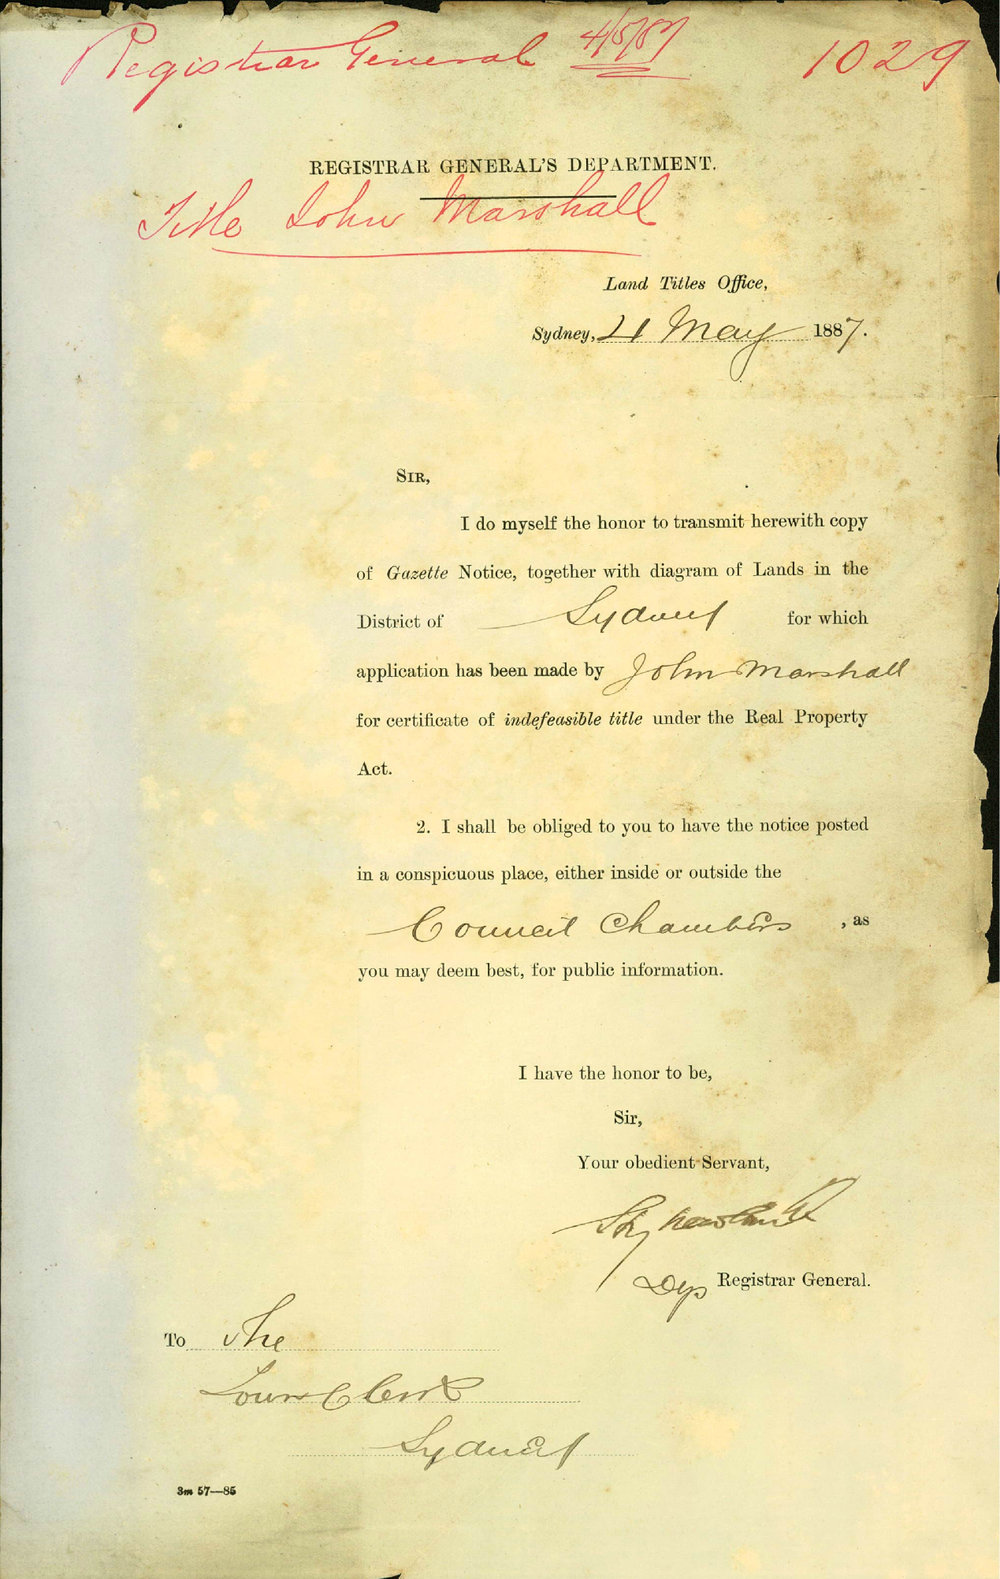 Registrar General 4/5/87 1029
REGISTRAR GENERAL'S DEPARTMENT.
Title John Marshall
Land Titles Office,
Sydney, 4 May 1887.
SIR,
I do myself the honor to transmit herewith copy
of Gazette Notice, together with diagram of Lands in the
District of Sydney for which
application has been made by John Marshall
for certificate of indefeasible title under the Real Property
Act.
2. I shall be obliged to you to have the notice posted
in a conspicuous place, either inside or outside the
Council Chambers, as
you may deem best, for public information.
I have the honor to be,
Sir,
Your obedient Servant,
Dep Registrar General.
To The
Town Clerk
Sydney
3m 57—85